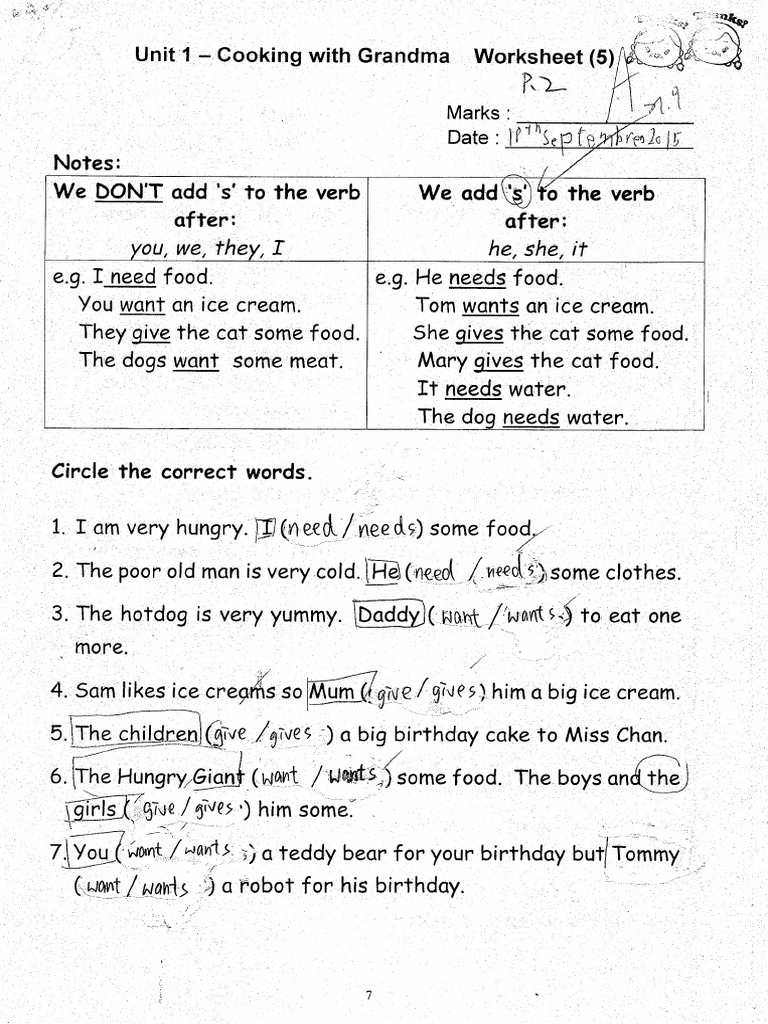 Thanks! Thanks!
Unit 1 – Cooking with Grandma Worksheet (5)
P.2
A
Marks :
Date : 18th Septembre 2015
Notes:
We DON'T add 's' to the verb after:
you, we, they, I
We add 's' to the verb after:
he, she, it
e.g. I need food.
You want an ice cream.
They give the cat some food.
The dogs want some meat.
e.g. He needs food.
Tom wants an ice cream.
She gives the cat some food.
Mary gives the cat food.
It needs water.
The dog needs water.
Circle the correct words.
1. I am very hungry. I (need / needs) some food.
2. The poor old man is very cold. He (need / needs) some clothes.
3. The hotdog is very yummy. Daddy (want / wants) to eat one
more.
4. Sam likes ice creams so Mum (give / gives) him a big ice cream.
5. The children (give / gives) a big birthday cake to Miss Chan.
6. The Hungry Giant (want / wants) some food. The boys and the
girls (give / gives) him some.
7. You (want / wants) a teddy bear for your birthday but Tommy
(want / wants) a robot for his birthday.
7